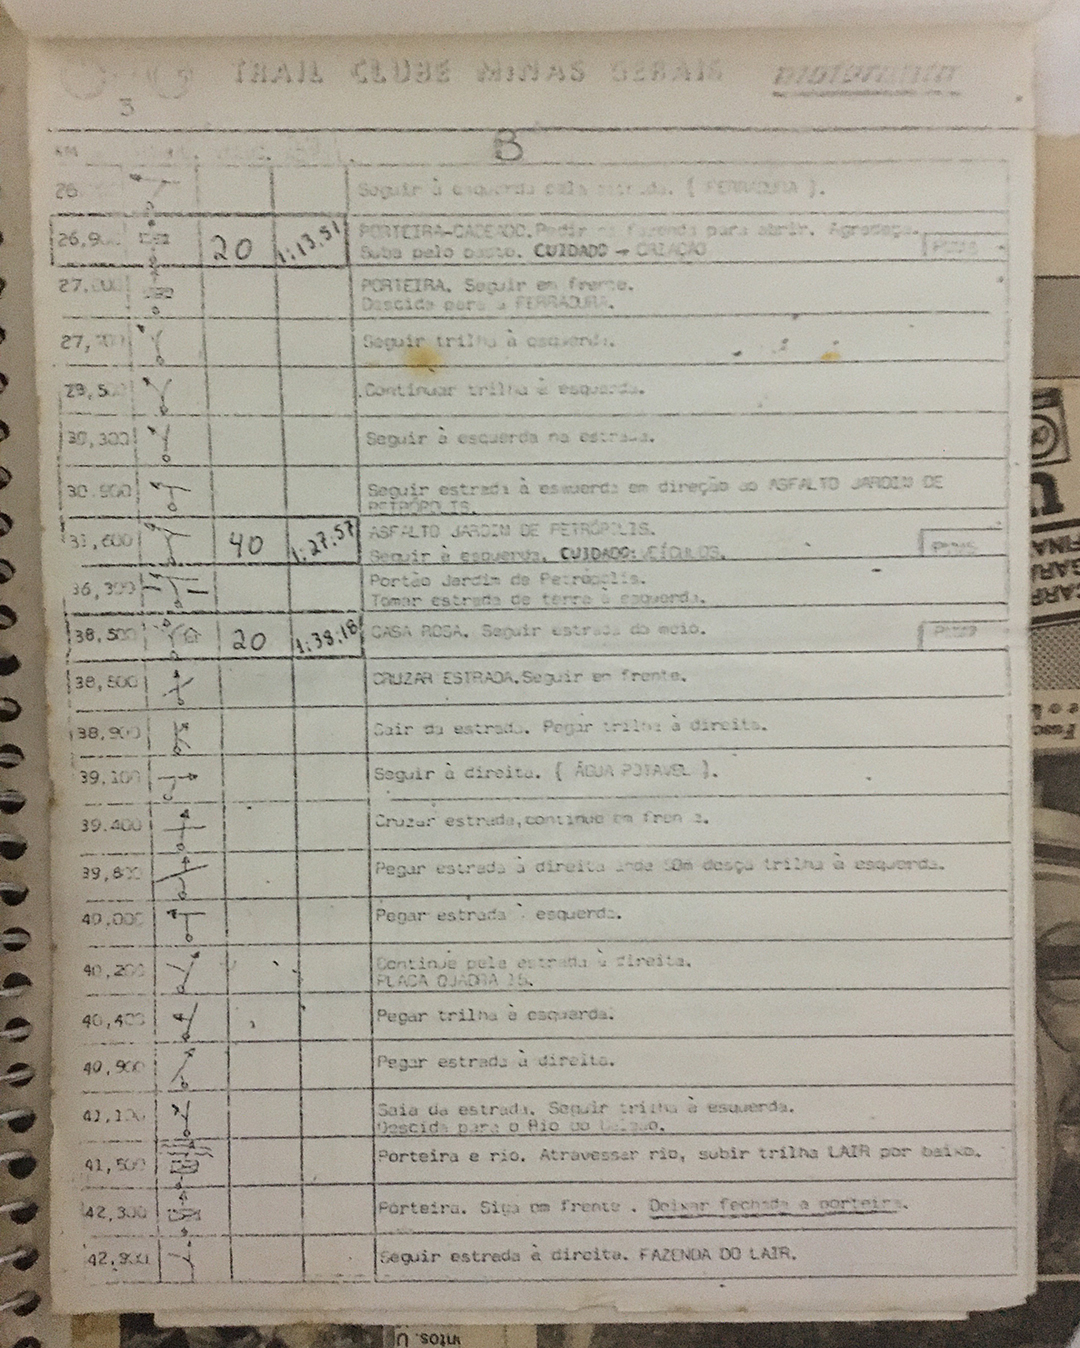 TRAIL CLUBE MINAS GERAIS
3
B
KM
26 Seguir à esquerda pela estrada. ( FERRADURA ).
26,9 20 1:13.51 PORTEIRA-CADEADO. Pedir na fazenda para abrir. Agradeça.
Suba pelo pasto. CUIDADO → CRIAÇÃO
27, PORTEIRA. Seguir em frente.
Descida para a FERRADURA.
27, Seguir trilha à esquerda.
29,500 Continuar trilha à esquerda.
30,300 Seguir à esquerda na estrada.
30.900 Seguir estrada à esquerda em direção ao ASFALTO JARDIM DE
PETRÓPOLIS.
31,600 40 1:27:57 ASFALTO JARDIM DE PETRÓPOLIS.
Seguir à esquerda. CUIDADO: VEÍCULOS.
36,300 Portão Jardim de Petrópolis.
Tomar estrada de terra à esquerda.
38,500 20 1:38:18 CASA ROSA. Seguir estrada do meio.
38,500 CRUZAR ESTRADA. Seguir em frente.
38,900 Sair da estrada. Pegar trilha à direita.
39,100 Seguir à direita. ( ÁGUA POTAVEL ).
39.400 Cruzar estrada, continue em fren a.
39,800 Pegar estrada à direita 50m desça trilha à esquerda.
40,000 Pegar estrada à esquerda.
40,200 Continue pela estrada à direita.
PLACA QUADRA 15.
40,400 Pegar trilha à esquerda.
40,900 Pegar estrada à direita.
41,100 Saia da estrada. Seguir trilha à esquerda.
Descida para o Rio do
41,500 Porteira e rio. Atravessar rio, subir trilha LAIR por baixo.
42,300 Porteira. Siga em frente . Deixar fechada a porteira.
42,900 Seguir estrada à direita. FAZENDA DO LAIR.